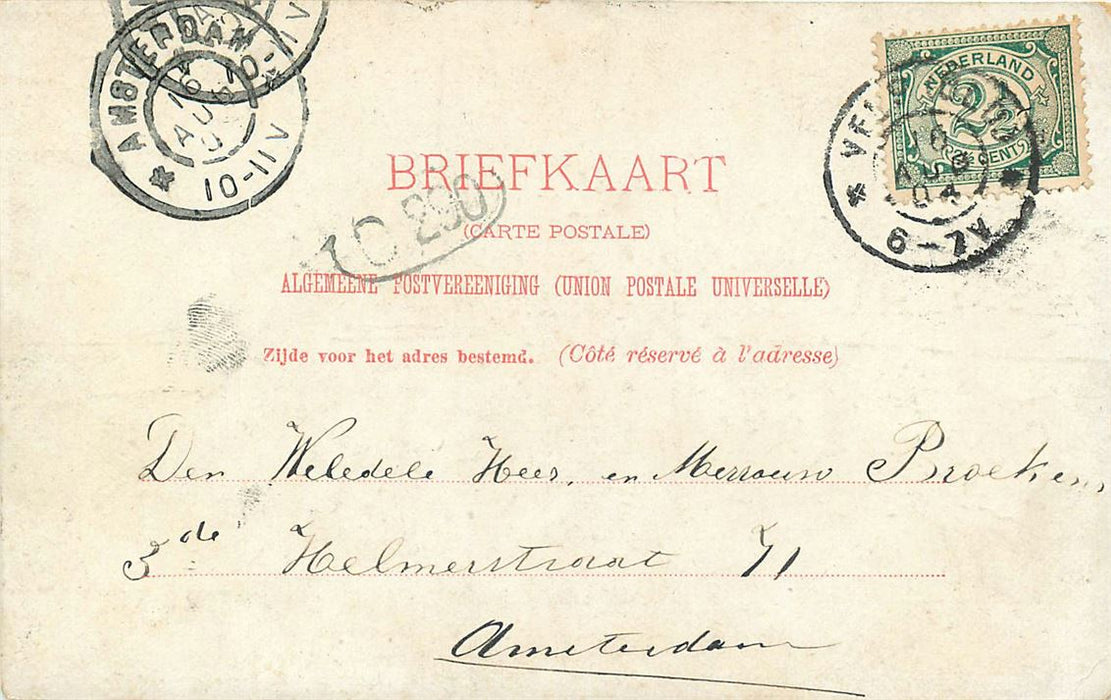 AMSTERDAM
16 AUG 0
10-11V
NEDERLAND
2½
CENT
6-7V
BRIEFKAART
C 290
(CARTE POSTALE)
ALGEMEENE POSTVEREENIGING (UNION POSTALE UNIVERSELLE)
Zijde voor het adres bestemd. (Côté réservé à l'adresse)
Den Weledele Heer, en Mevrouw Broekens
3de Helmerstraat 71
Amsterdam